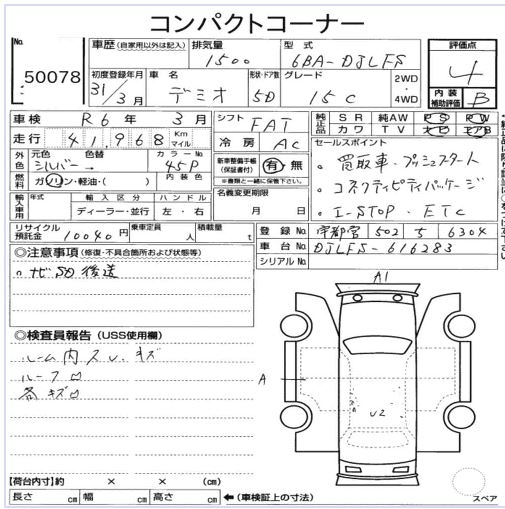 コンパクトコーナー
No. 50078
車歴 (自家用以外は記入) 排気量 1500 型式 6BA-DJLFS
評価点 4
初度登録年月 31/3月 車名 デミオ 形状・ドア数 5D グレード 15C 2WD・4WD
内装補助評価 B
車検 R6年3月 シフト FAT
純正品 SR 純AW PS PW
カワ TV ナビ エアB
走行 41,968 Km マイル 冷房 AC
セールスポイント
外色 元色 シルバー→ 色替 カラーNo 45P
新車整備手帳(保証書付) 有・無
※書類と一緒に保管下さい。
・買取車・プッシュスタート
燃料 ガソリン・軽油・( ) 内装色
名義変更期限 月 日
・コネクティビティパッケージ
輸入車用 年式 輸入区分 ハンドル
ディーラー・並行 左・右
・I-STOP・ETC
リサイクル預託金 10090円 乗車定員 人 積載量 t
登録No 宇都宮 502 5 6304
車台No DJLFS-616283
シリアルNo
◎注意事項 (修復・不具合箇所および状態等)
ナビSD後送
◎検査員報告 (USS使用欄)
ルーム内スレ、キズ
ルーフロ
各キズロ
A1
A
U2
【荷台内寸】約 × × (cm)
長さ cm 幅 cm 高さ cm ←(車検証上の寸法)
スペア